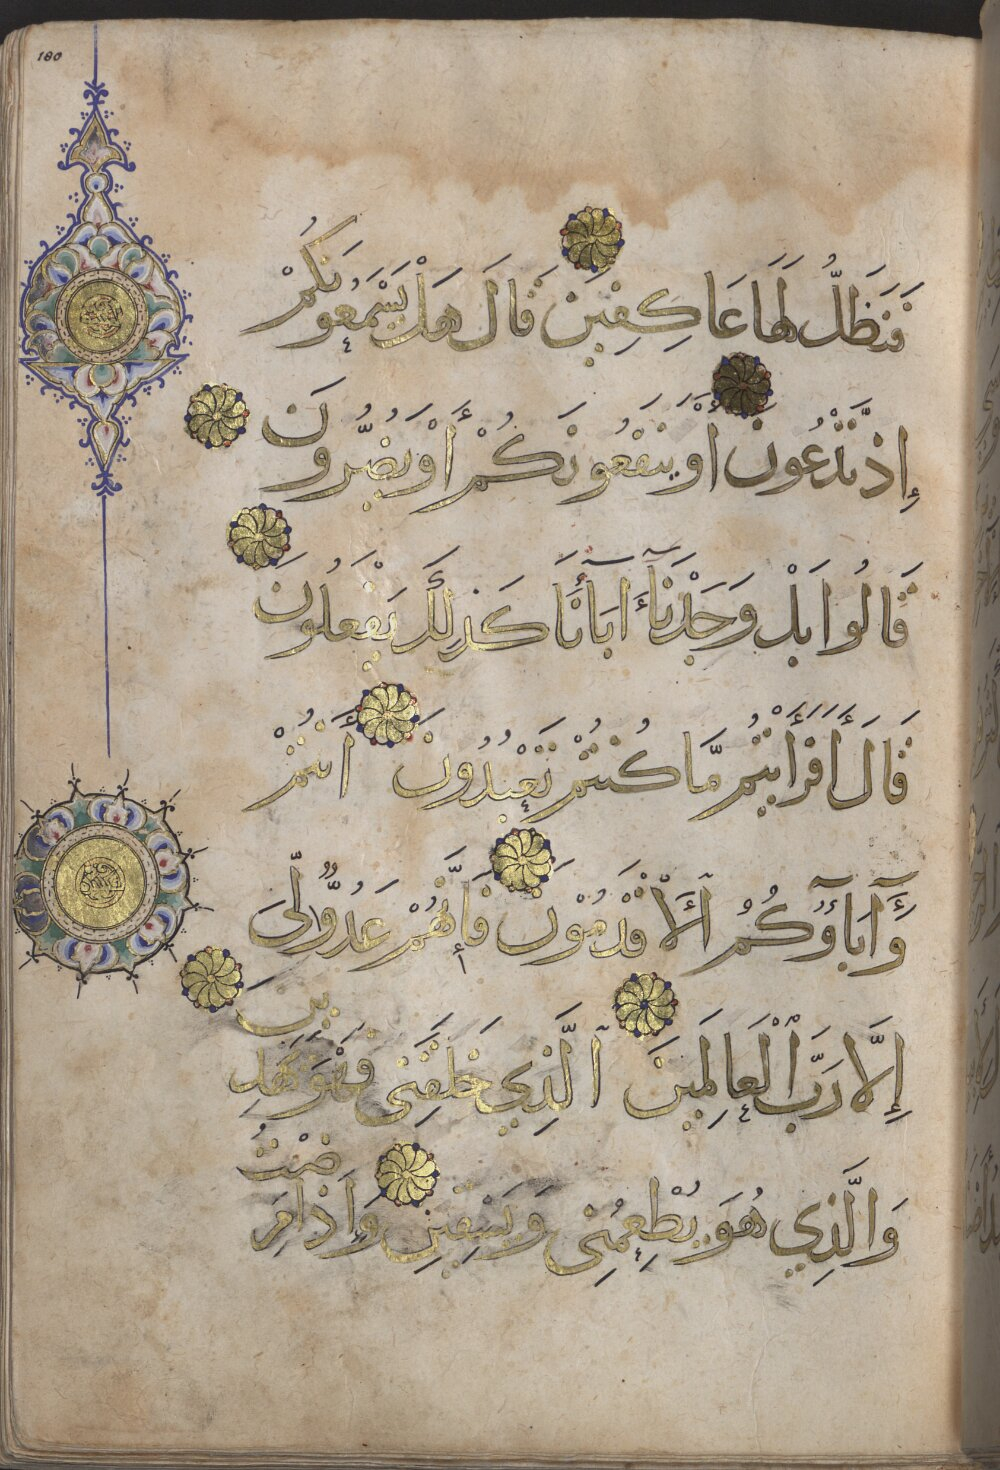 180
فَنَظَلُّ لَهَا عَاكِفِينَ قَالَ هَلْ يَسْمَعُونَكُمْ
إِذْ تَدْعُونَ أَوْ يَنفَعُونَكُمْ أَوْ يَضُرُّونَ
قَالُوا بَلْ وَجَدْنَا آبَاءَنَا كَذَلِكَ يَفْعَلُونَ
قَالَ أَفَرَأَيْتُم مَّا كُنتُمْ تَعْبُدُونَ أَنتُمْ
وَآبَاؤُكُمُ الْأَقْدَمُونَ فَإِنَّهُمْ عَدُوٌّ لِّي
إِلَّا رَبَّ الْعَالَمِينَ الَّذِي خَلَقَنِي فَهُوَ يَهْدِينِ
وَالَّذِي هُوَ يُطْعِمُنِي وَيَسْقِينِ وَإِذَا مَرِضْتُ